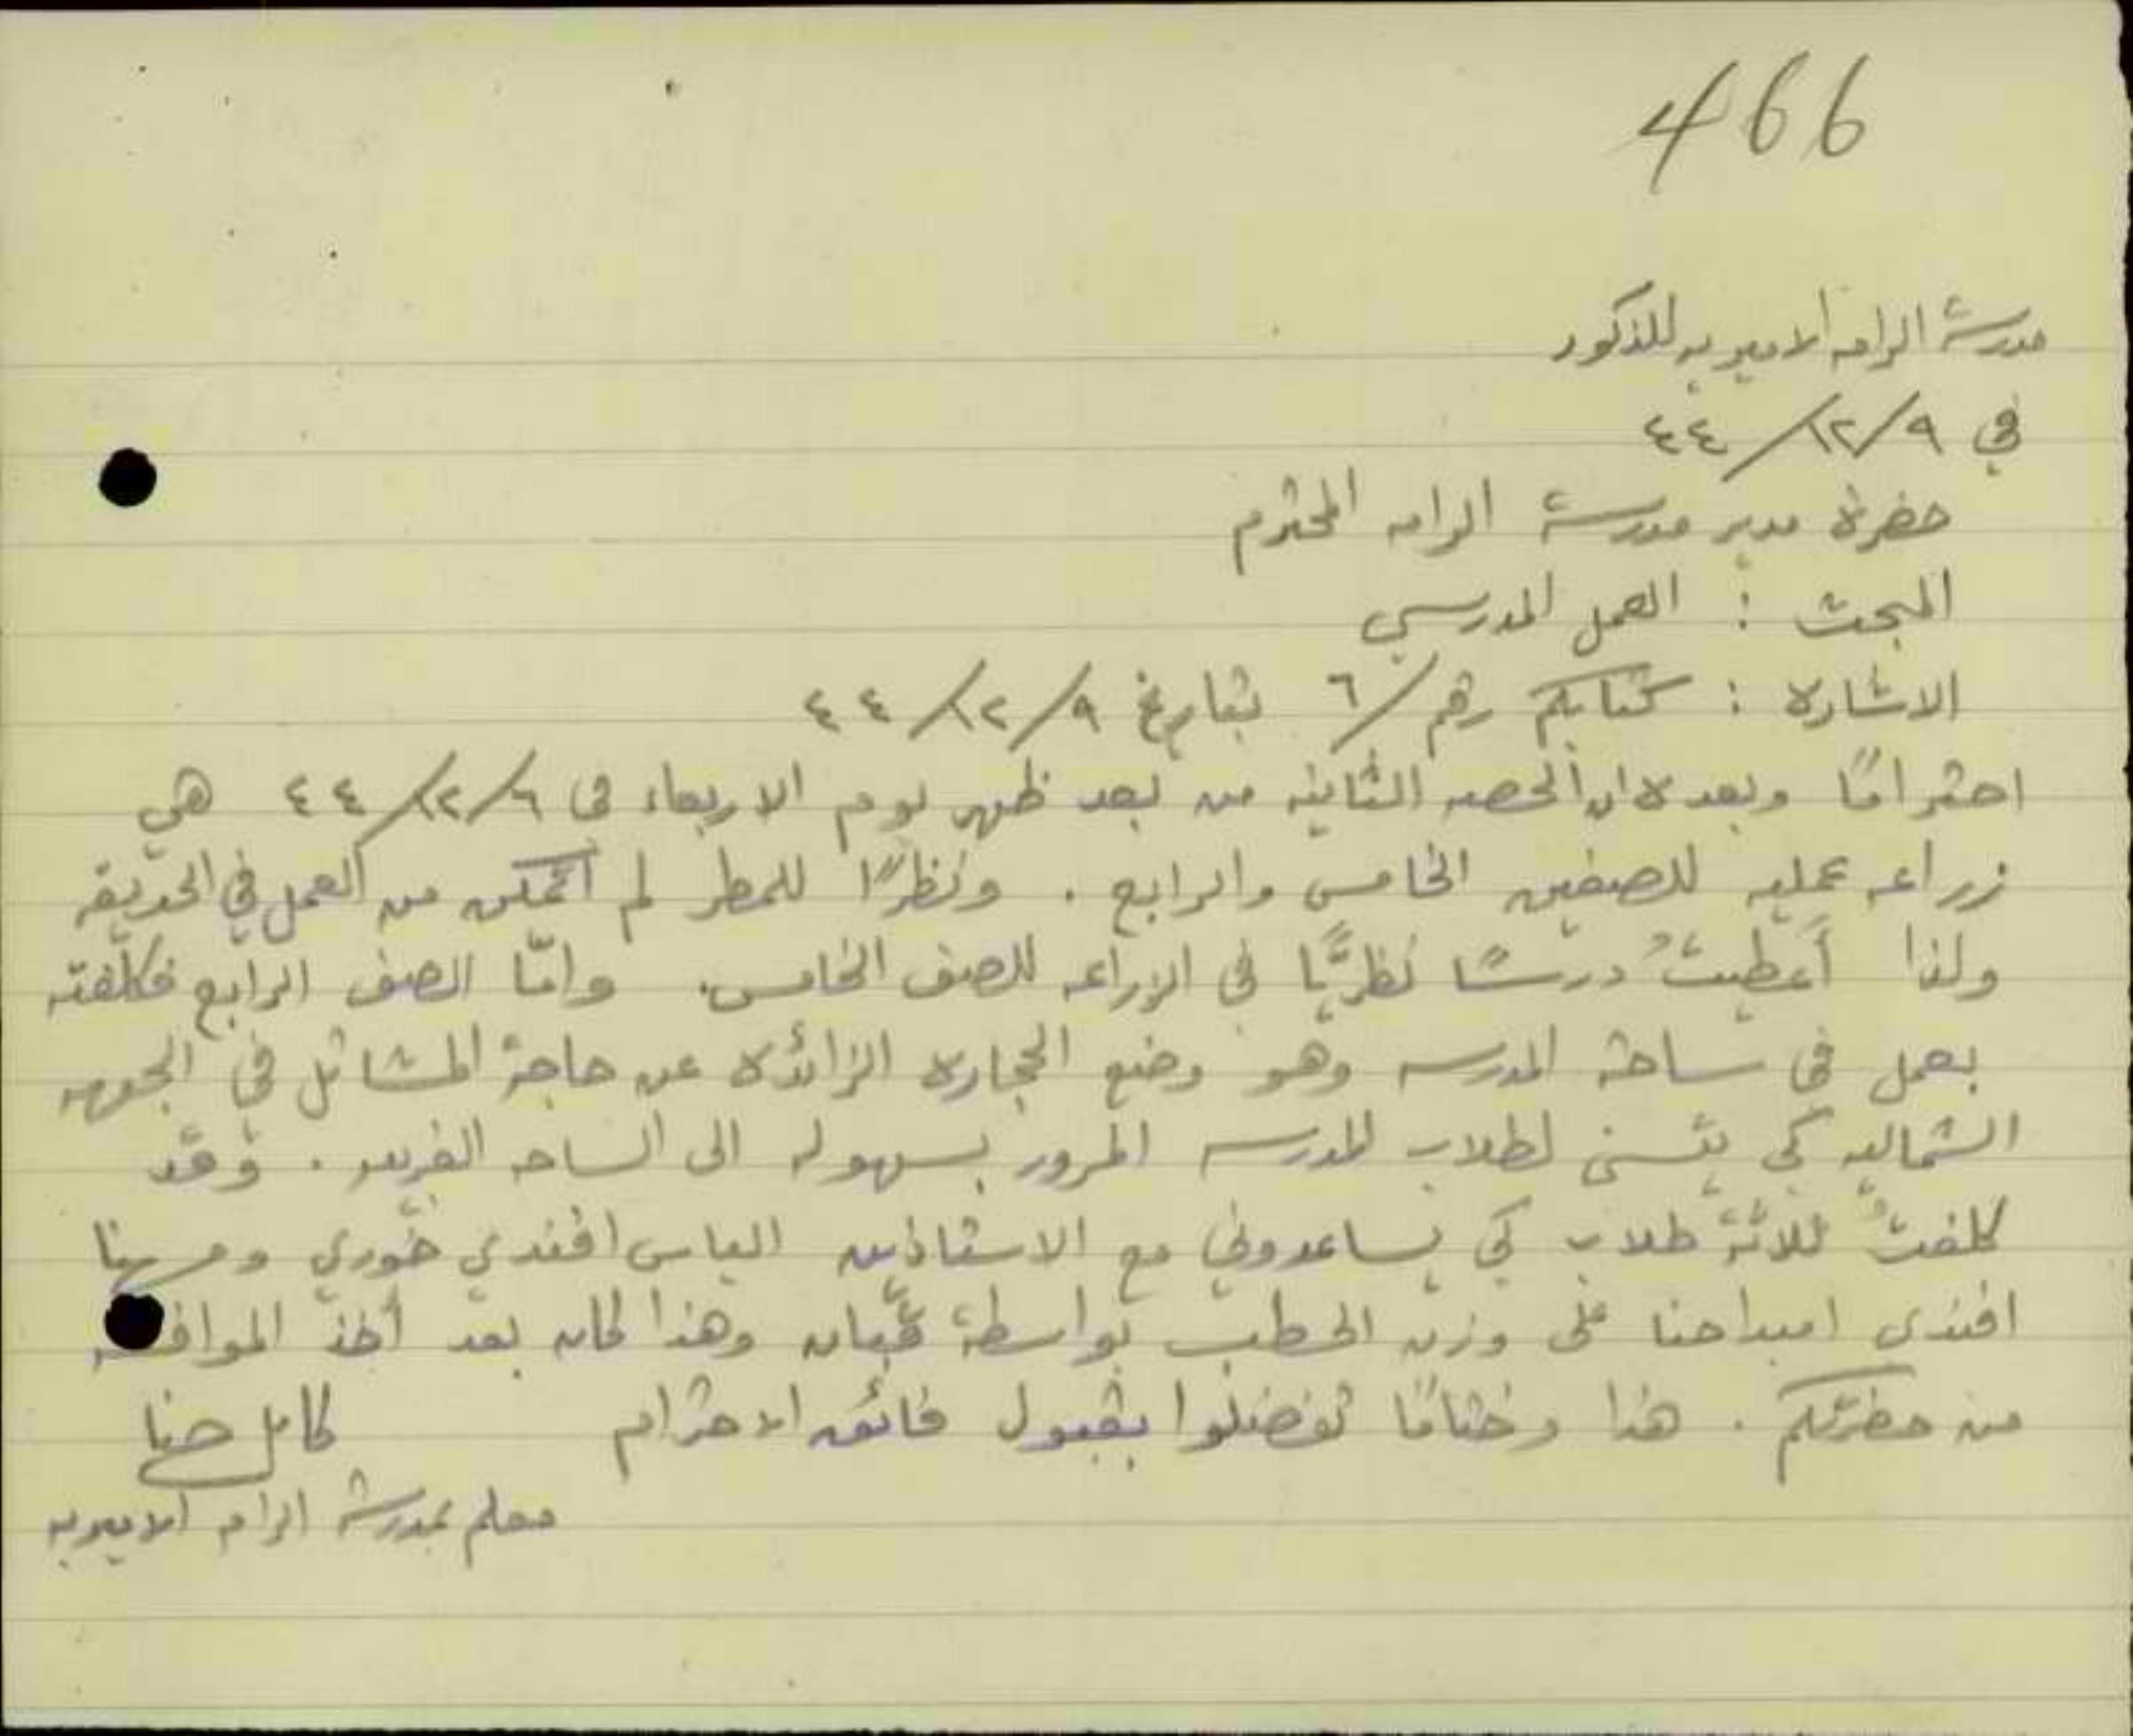 466
مدرسة الرامه الاميريه للذكور
في ٩/١٢/٤٤
حضرة مدير مدرسة الرامه المحترم
المبحث : العمل المدرسي
الاشاره : كتابكم رقم /٦ بتاريخ ٩/١٢/٤٤
احترامًا وبعده ان الحصه الثانيه من بعد ظهر يوم الاربعاء في ٦/١٢/٤٤ هي
زراعه عمليه للصفين الخامس والرابع . ونظرًا للمطر لم أتمكن من العمل في الحديقه
ولذا أعطيتُ درسًا نظريًّا في الزراعه للصف الخامس. وامّا الصف الرابع فكلّفته
بعمل في ساحة المدرسه وهو وضع الحجاره الزائده عن حاجة المشاتل في الجهه
الشماليه كي يتسنى لطلاب المدرسه المرور بسهوله الى الساحه الغربيه . وقد
كلفتُ ثلاثة طلاب كي يساعدوني مع الاستاذين الياس افندي خوري ومهنا
افندي حنا على وزن الحطب بواسطة قبّان وهذا كان بعد أخذ الموافقه
من حضرتكم . هذا وختامًا تفضلوا بقبول فائق الاحترام
كامل حنا
معلم بمدرسة الرامه الاميريه